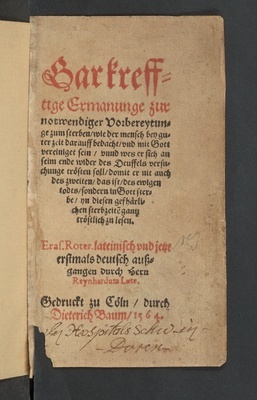 Gar kreff-
tige Ermanunge zur
notwendiger Vorbereytun-
ge zum sterben/wie der mensch bey gu-
ter zeit darauff bedacht/vnd mit Gott
vereiniget sein/vnnd wes er sich an
seim ende wider des Teuffels versu-
chunge trösten soll/domit er nit auch
des zweiten/das ist/des ewigen
todts/sondern in Gott ster-
be/yn diesen gefhärli-
chen sterbzeitē gantz
tröstlich zu lesen.
Eras. Roter. lateinisch vnd jetzt
erstmals deutsch auß-
gangen durch Hern
Reynhardum Lutz.
Gedruckt zu Cöln/durch
Dieterich Baum/1564.
Hospitals